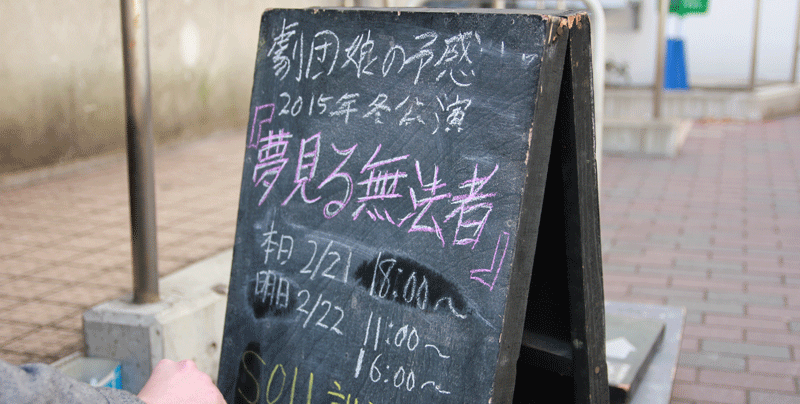 劇団娘の予感
2015年冬公演
『夢見る無法者』
本日 2/21 18:00〜
明日 2/22 11:00〜
16:00〜